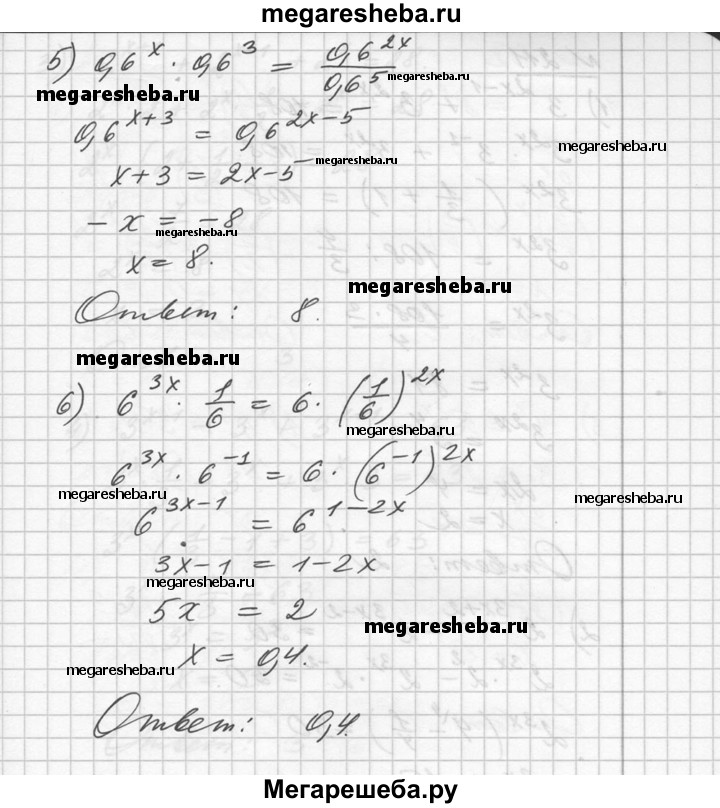 megaresheba.ru
5) 0,6^x · 0,6^3 = 0,6^{2x} / 0,6^5
megaresheba.ru
megaresheba.ru
0,6^{x+3} = 0,6^{2x-5}
megaresheba.ru
x+3 = 2x-5
megaresheba.ru
- x = -8
megaresheba.ru
x = 8.
megaresheba.ru
Ответ: 8.
megaresheba.ru
6) 6^{3x} · 1/6 = 6 · (1/6)^{2x}
megaresheba.ru
6^{3x} · 6^{-1} = 6 · (6^{-1})^{2x}
megaresheba.ru
megaresheba.ru
6^{3x-1} = 6^{1-2x}
3x-1 = 1-2x
megaresheba.ru
5x = 2
megaresheba.ru
x = 0,4.
megaresheba.ru
Ответ: 0,4.
Мегарешеба.ру